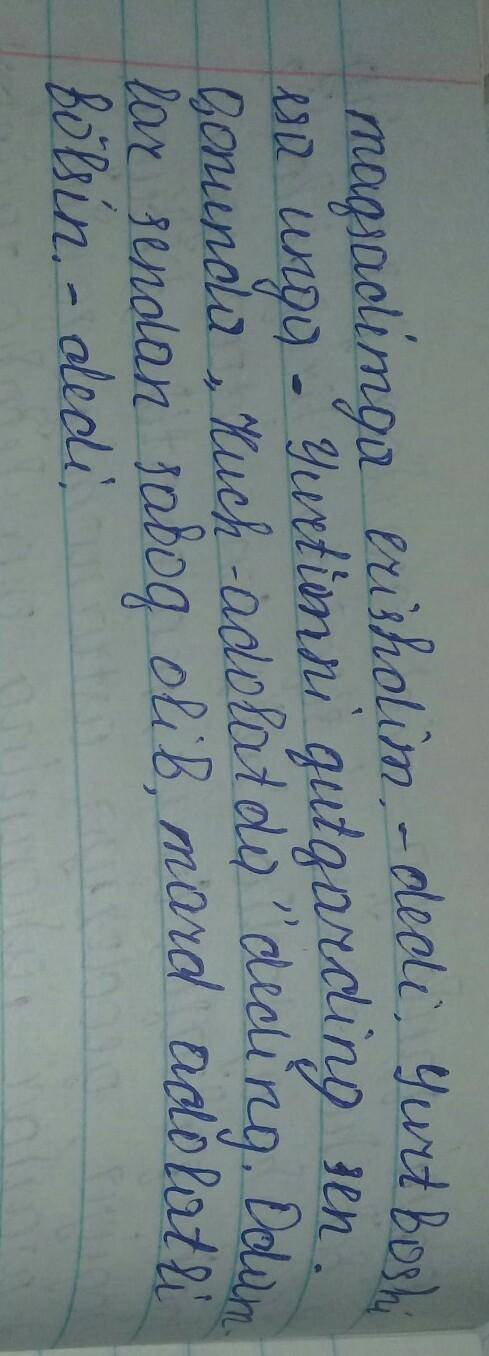 maqsadimga erishdim, - dedi. Yurtboshi
esa unga - Yurtimni qutqarding sen.
Qonunda „Kuch-adolatda" deding. Odam-
lar sendan saboq olib, mard adolatli
bo'lsin. - dedi.